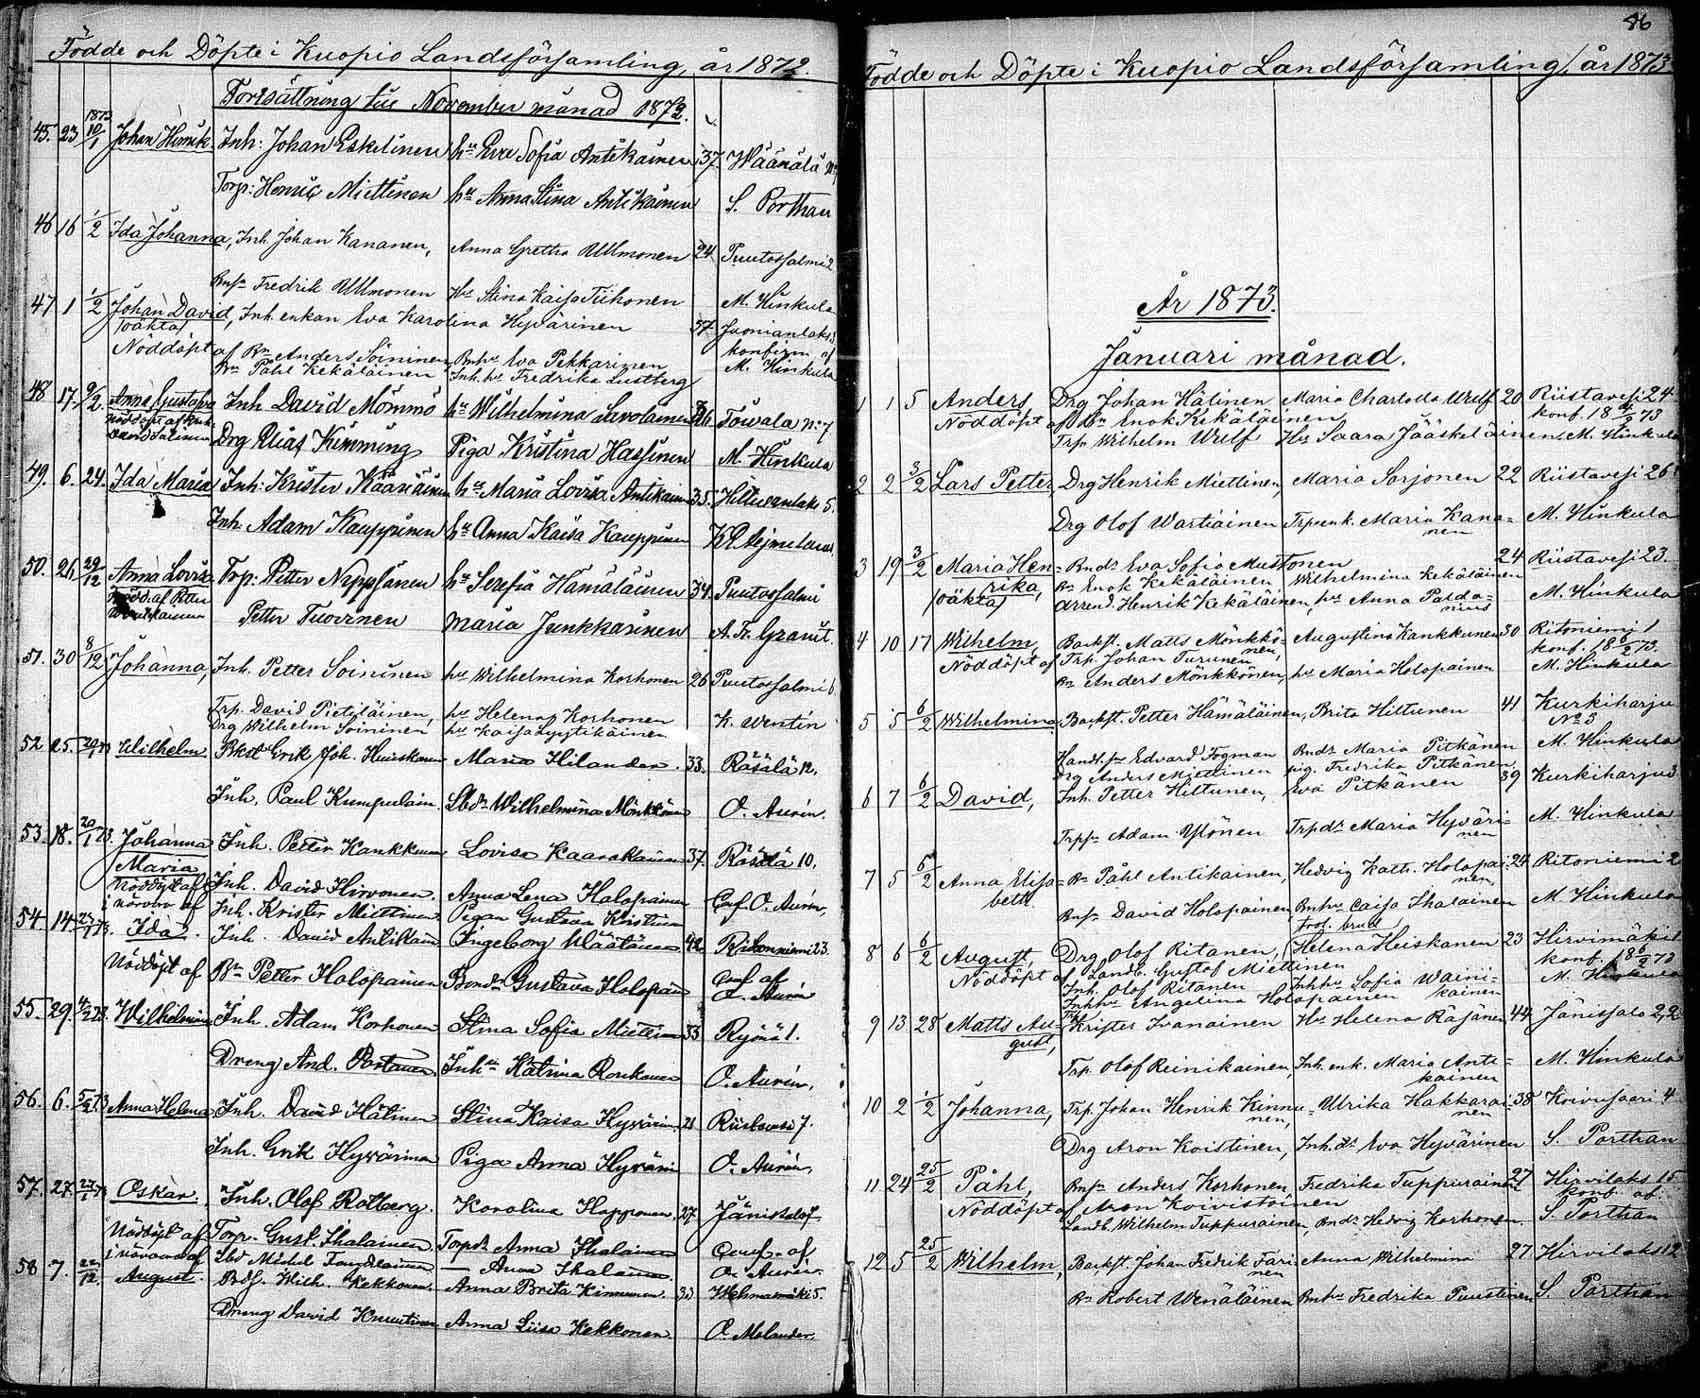 Födde och Döpte i Kuopio Landsförsamling, år 1872.
Fortsättning till November månad 1872.
45. 23 1873 10/1 Johan Henrik. Inh: Johan Eskelinen hu Eva Sofia Antikainen 37. Wäänälä
Torp: Henric Miettinen hu Anna Stina Antikainen S. Porthan
46 16 1/2 Ida Johanna, Inh. Johan Kananen, Anna Gretha Ullmonen 24 Puutossalmi 2
Fredrik Ullmonen Hu Stina Kaisa Tiihonen M. Hinkula
47 1 1/2 Johan David, Inh. enkan Eva Karolina Hyvärinen 37
(oäkta)
Nöddöpt af Bn Anders Soininen Bnhu Eva Pekkarinen konfirm af
Bn Påhl Kekäläinen Inh. hu Fredrika Lustberg M. Hinkula
48 17. 9/2. Anna Gustafva Inh David Mömmö hu Wilhelmina Savolainen Towala No 7
nöddöpt af
David
Drg Elias Kimming Piga Kristina Hassinen M. Hinkula
49. 6. 24. Ida Maria Inh: Krister Räänäinen hu Maria Lovisa Antikainen 35. Hiltulanlaks 5.
Inh. Adam Kauppinen hu Anna Kaisa Kauppinen
50. 26. 29/12 Anna Lovisa Trp: Petter Nypssänen hu Serafia Hämäläinen 34. Puutossalmi
nödd. af Petter
Petter Tuovinen Maria Junkkarinen A. Fr. Granit.
51. 30 8/12 Johanna, Inh. Petter Soininen hu Wilhelmina Korhonen 26 Puutossalmi 6
Trp. David Pietiläinen, hu Helena Korhonen K. Wentin
Drg Wilhelm Soininen hu Kaisa Lyytikäinen
52 25. Wilhelm. Bkst Erik Joh. Huiskonen Maria Hilander. 33. Räsälä 12.
Inh. Paul Kumpulain. Lbdr Wilhelmina Mönkkönen O. Aurén.
53. 18. 20/1 73. Johanna Inh. Petter Kankkunen Lovisa Kaarakainen 37. Räsälä 10.
Maria
Nöddöpt af Inh. David Hirvonen. Anna Lena Holopainen Conf. O. Aurén.
i närvaro af Inh. Krister Miettinen. Pigan Gustava Kristina
54. 14. Ida. Inh. David Antikain Ingeborg Määttänen 42 Ritonniemi 23.
Nöddöpt af Bn Petter Holopainen Bondr Gustava Holopain Conf af
O. Aurén
55. 29. 4/2 73. Wilhelmina Inh. Adam Korhonen Stina Sofia Miettinen 33 Ryönä 1.
Dreng And. Partanen. Inhu Katrina Ronkanen O. Aurén.
56. 6. 5/2 73 Anna Helena Inh. David Hätinen Stina Kaisa Hyvärin. 28 Riistavesi 7.
Inh. Erik Hyvärinen Piga Anna Hyvärin O. Aurén.
57. 27. Oskar. Inh. Olof Rotberg. Karolina Happonen. 27 Jänissalo
Nöddöpt af Torp. Gust. Ihalainen. Torpdr Anna Ihalainen Conf. af
i närvaro af Lbd Mickel — Anna Ihalainen. O. Aurén.
58 7. 22/12. August. Bdf. Wilh. Kekkonen. Anna Brita Kinnunen 30 Wehmasmäki 5.
Dreng David Knuutinen Anna Liisa Kekkonen O. Molander.
86
Födde och Döpte i Kuopio Landsförsamling, år 1873.
År 1873.
Januari månad.
1 1 5 Anders Drg Johan Hätinen Maria Charlotta Wulf 20 Riistavesi 24
Nöddöpt af Bn Enok Kekäläinen konf. 18 4/2 73
Trp. Wilhelm Wulf Hu Saara Jääskeläinen M. Hinkula
2 2 3/2 Lars Petter, Drg Henrik Miettinen, Maria Sorjonen 22 Riistavesi 26
Drg Olof Wartiainen Trpenk. Maria Kana= M. Hinkula
nen
3 19 3/2 Maria Hen= Bndr Eva Sofia Mustonen 24 Riistavesi 23.
rika, Bn Enok Kekäläinen Wilhelmina Kekäläinen
(oäkta) arrend. Henrik Kekäläinen, hu Anna Palda= M. Hinkula
nius
4 10 17 Wilhelm, Backst. Matts Mönkkö= Augustina Kankkunen 30 Ritoniemi 1
nen,
Nöddöpt af Trp. Johan Turunen konf. 18 6/2 73.
Bn Anders Mönkkönen, hu Maria Holopainen M. Hinkula
5 5 6/2 Wilhelmina, Backst. Petter Hämäläinen, Brita Hiltunen 41 Kurkiharju
No 3
Handl. Edvard Fogman Bndr Maria Pitkänen M. Hinkula
Drg Anders Miettinen pig. Fredrika Pitkänen
6 7 6/2 David, Inh. Petter Hiltunen, Eva Pitkänen 39 Kurkiharju 3
Trpsn Adam Ylönen Trpdr Maria Hyväri= M. Hinkula
nen
7 5 6/2 Anna Elisa= Bn Påhl Antikainen, Hedvig Kath. Holopai= 24 Ritoniemi 2
beth nen,
Bnsn David Holopainen Bnhu Caisa Ihalainen M. Hinkula
trol. brud
8 6 6/2 August, Drg Olof Ritanen, Helena Heiskanen 23 Hirvimäki 1
Nöddöpt af Landb. Gustof Miettinen konf. 18 6/2 73
Inh. Olof Ritanen Inhhu Sofia Waini= M. Hinkula
Inhhu Angelina Holopainen kainen
9 13 28 Matts Au= Krister Ivanainen Hu Helena Räsänen 44 Jänissalo 2,2
gust,
Trp. Olof Reinikainen, Inh. enk. Maria Anti= M. Hinkula
kainen
10 2 1/2 Johanna, Trp. Johan Henrik Kinnu= Ulrika Hakkarai= 38 Koivusaari 4
nen, nen
Drg Aron Koistinen, Inh. dr Eva Hyvärinen S. Porthan
11 24 25/2 Påhl, Bnsn Anders Korhonen, Fredrika Tuppurainen 27 Hirvilaks 15
Nöddöpt af Aron Koivistoinen konf. af
Landb. Wilhelm Tuppurainen, Bndr Hedvig Korhonen. S. Porthan
12 5 25/2 Wilhelm, Backst. Johan Fredrik Fari= Anna Wilhelmina 27 Hirvilaks 12
nen
Bn Robert Wenäläinen Bnhu Fredrika Puustinen S. Porthan